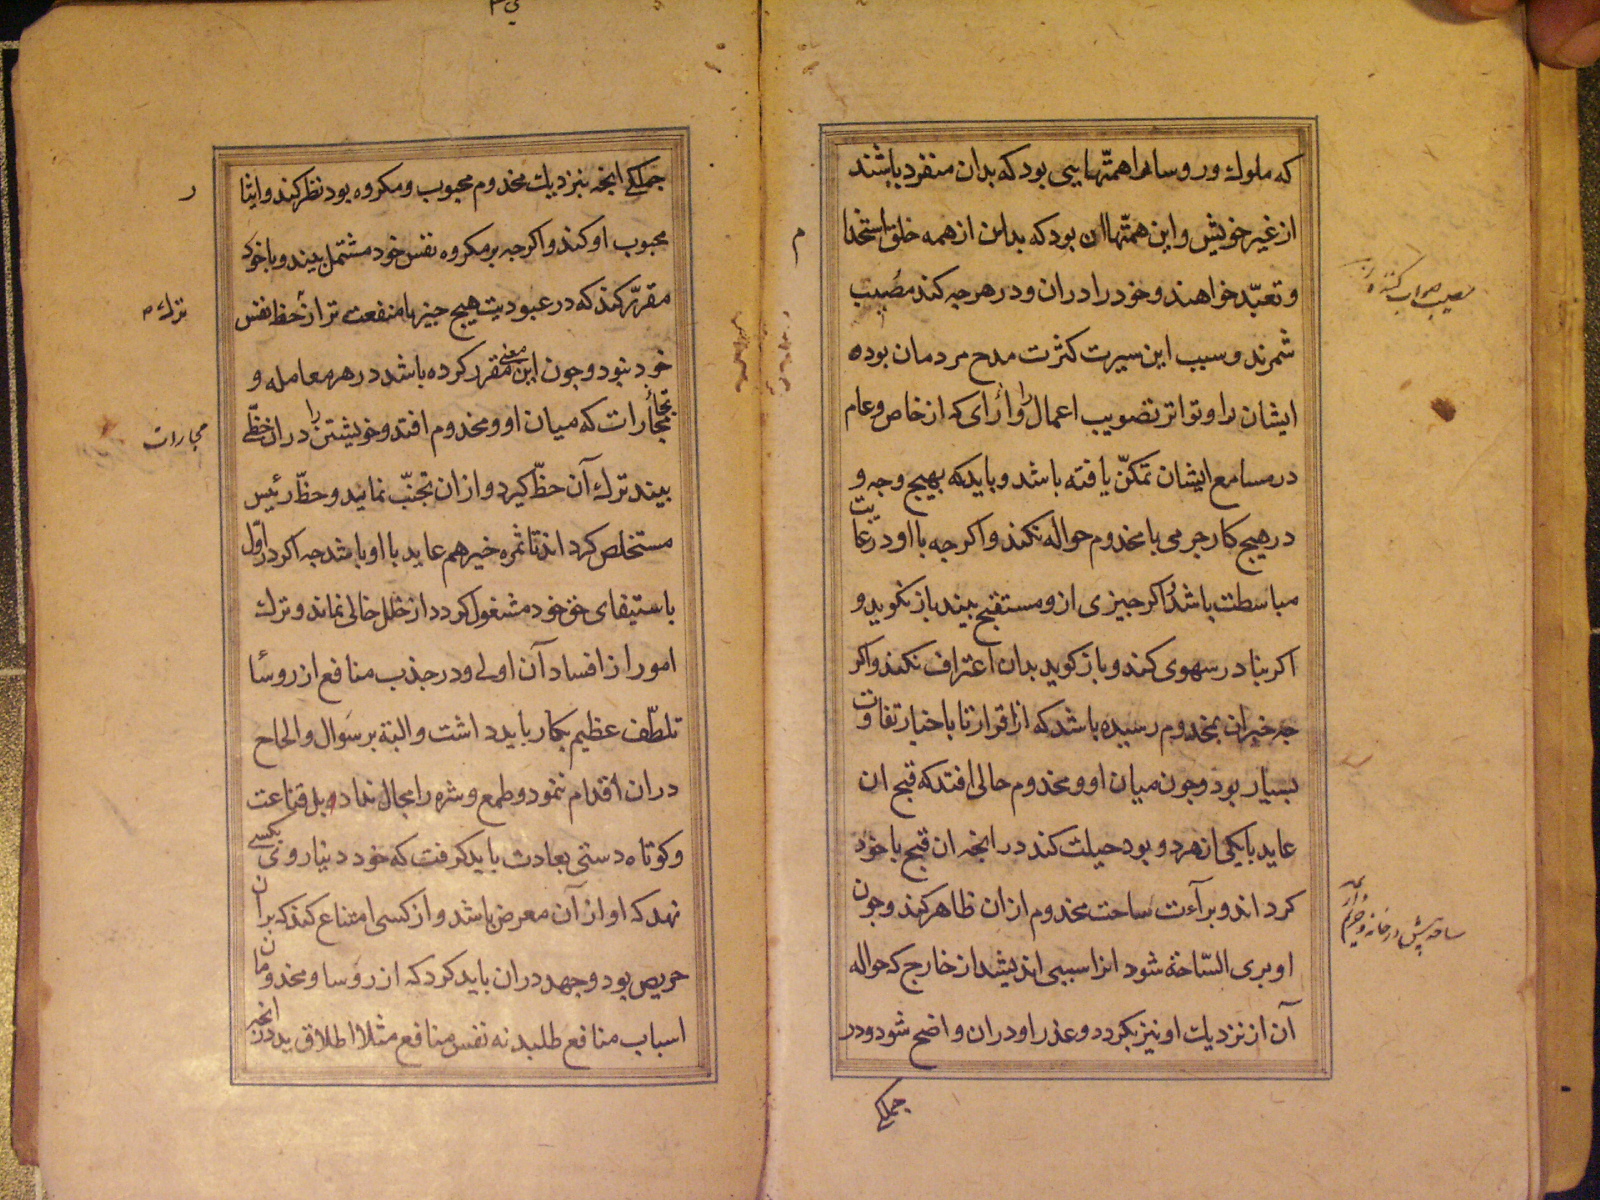 که ملوك و روسا را همتهایی بود که بدان منفرد باشند
از غیر خویش و این همتها ان بود که بدان از همه خلق استخدا
و تعبّد خواهند و خود را دران و در هر جه کند مصیب
شمرند و سبب این سیرت کثرت مدح مردمان بوده
ایشان را و تواتر تصویب اعمال و آرای که از خاص و عام
در مسامع ایشان تمکّن یافته باشد و باید که بهیج وجه و
در هیج کار جرمی با مخدوم حواله نکند و اکر جه با او در غایت
مباسطت باشد و اکر جیزی از و مستقبح بیند باز نکوید و
اکر بنادر سهوی کند و باز کوید بدان اعتراف نکند و اکر
جه خبر ان بمخدوم رسیده باشد که از اقرار تا با خبار تفاوت
بسیار بود و جون میان او و مخدوم حالی افتد که قبح ان
عاید با یکی از هر دو بود حیلت کند در انجه ان قبح با خود
کرداند و برآءت ساحت مخدوم از ان ظاهر کند و جون
او بری السّاحة شود انرا سببی اندیشد از خارج که حواله
آن از نزدیك او نیز بکردد و عذر او دران واضح شود و در
جملکی
مصیب صواب کننده
ساحة پیش در خانه و
م
جملکی انجه بنزدیك مخدوم محبوب و مکروه بود نظر کند و ایثا
محبوب او کند و اکر جه بر مکروه نفس خود مشتمل بیند و با خود
مقرّر کند که در عبودیت هیج جیز با منفعت تر از حظ نفس
خود نبود و جون این معنی مقرر کرده باشد در هر معامله و
مجارات که میان او و مخدوم افتد و خویشتن را دران حظّی
بیند ترك آن حظّ کیرد و از ان تجنّب نماید و حظّ رئیس
مستخلص کرداند تا ثمره خیر هم عاید با او باشد جه اکر در اوّل
باستیفای حق خود مشغول کردد از خلل خالی نماند و ترك
امور از افساد آن اولی و در جذب منافع از روسا
تلطّف عظیم بکار باید داشت و البته بر سوال و الحاح
دران اقدام ننمود و طمع و شره را مجال نداد بل قناعت
و کوتاه دستی بعادت باید کرفت که خود دنیا روی بکسی
نهد که او از آن معرض باشد و از کسی امتناع کند که بران
حریص بود و جهد دران باید کرد که از روسا و مخدومان
اسباب منافع طلبد نه نفس منافع مثلا اطلاق ید در انجه
ر
ترك
مجارات